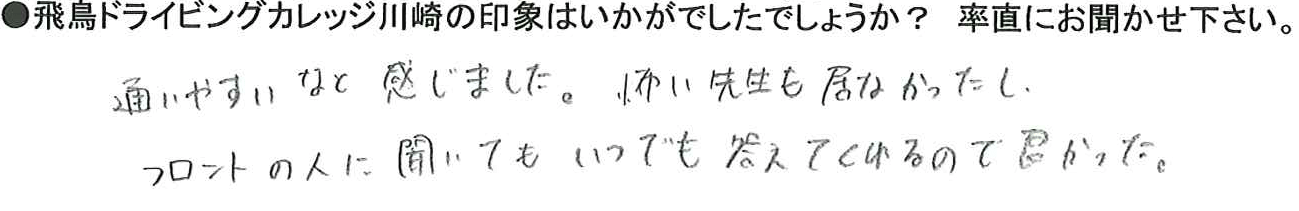 ●飛鳥ドライビングカレッジ川崎の印象はいかがでしたでしょうか？ 率直にお聞かせ下さい。
通いやすいなと感じました。怖い先生も居なかったし、
フロントの人に聞いてもいつでも答えてくれるので良かった。